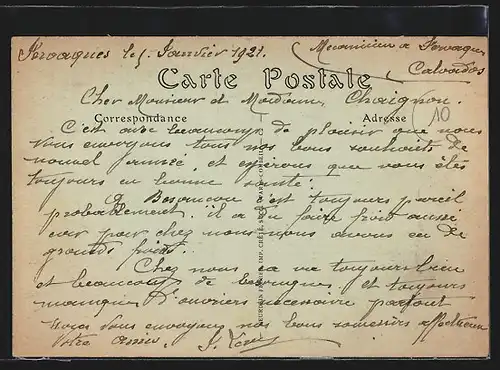 Fervaques le 5 Janvier 1921.
Mecanicien a Fervaques
Calvados
Carte Postale
Cher Monsieur et Madame Chaignon.
Correspondance Adresse
10
C'est avec beaucoup de plaisir que nous
vous envoyons tous nos bons souhaits de
nouvel année et espérons que vous êtes
toujours en bonne santé.
A Besancon c'est toujours pareil
probablement. il a du faire froid aussi
car pour chez nous nous avons eu de
grands froids.
Chez nous sa va toujours bien
et beaucoup de besognes et toujours
manque d'ouvriers necessaire partout
Nous vous envoyons nos bons souvenirs affectueux
Votre ami